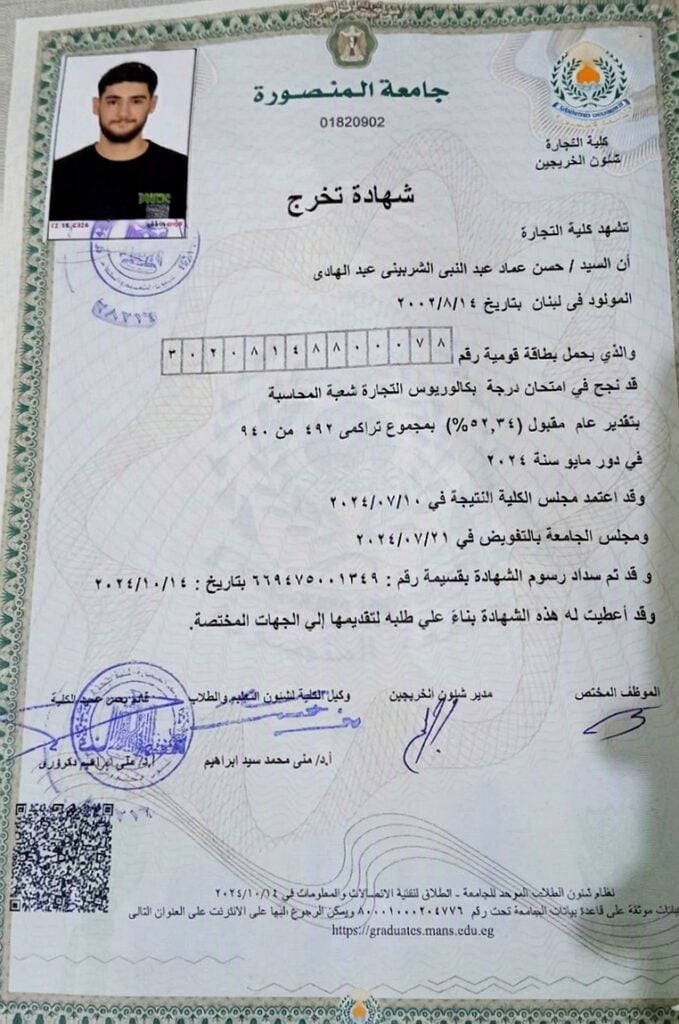 جامعة المنصورة
01820902
كلية التجارة
شئون الخريجين
شهادة تخرج
تشهد كلية التجارة
أن السيد / حسن عماد عبد النبى الشربينى عبد الهادى
المولود فى لبنان بتاريخ ٢٠٠٢/٨/١٤
والذي يحمل بطاقة قومية رقم ٣٠٢٠٨١٤٨٨٠٠٠٧٨
قد نجح في امتحان درجة بكالوريوس التجارة شعبة المحاسبة
بتقدير عام مقبول (٥٢,٣٤%) بمجموع تراكمى ٤٩٢ من ٩٤٠
في دور مايو سنة ٢٠٢٤
وقد اعتمد مجلس الكلية النتيجة في ٢٠٢٤/٠٧/١٠
ومجلس الجامعة بالتفويض في ٢٠٢٤/٠٧/٢١
و قد تم سداد رسوم الشهادة بقسيمة رقم : ٦٦٩٤٧٥٠٠١٣٤٩ بتاريخ : ٢٠٢٤/١٠/١٤
وقد أعطيت له هذه الشهادة بناءً علي طلبه لتقديمها إلي الجهات المختصة.
الموظف المختص
مدير شئون الخريجين
وكيل الكلية لشئون التعليم والطلاب
قائم بعمل عميد الكلية
أ.د/ منى محمد سيد ابراهيم
أ.د/ منى ابراهيم دكرورى
نظام شئون الطلاب الموحد للجامعة - انطلاق لتقنية الاتصالات والمعلومات في ٢٠٢٤/١٠/١٤
موثقة على قاعدة بيانات الجامعة تحت رقم ٨٠٠٠١٠٠٠٢٠٤٧٧٦ ويمكن الرجوع اليها على الانترنت على العنوان التالى
https://graduates.mans.edu.eg